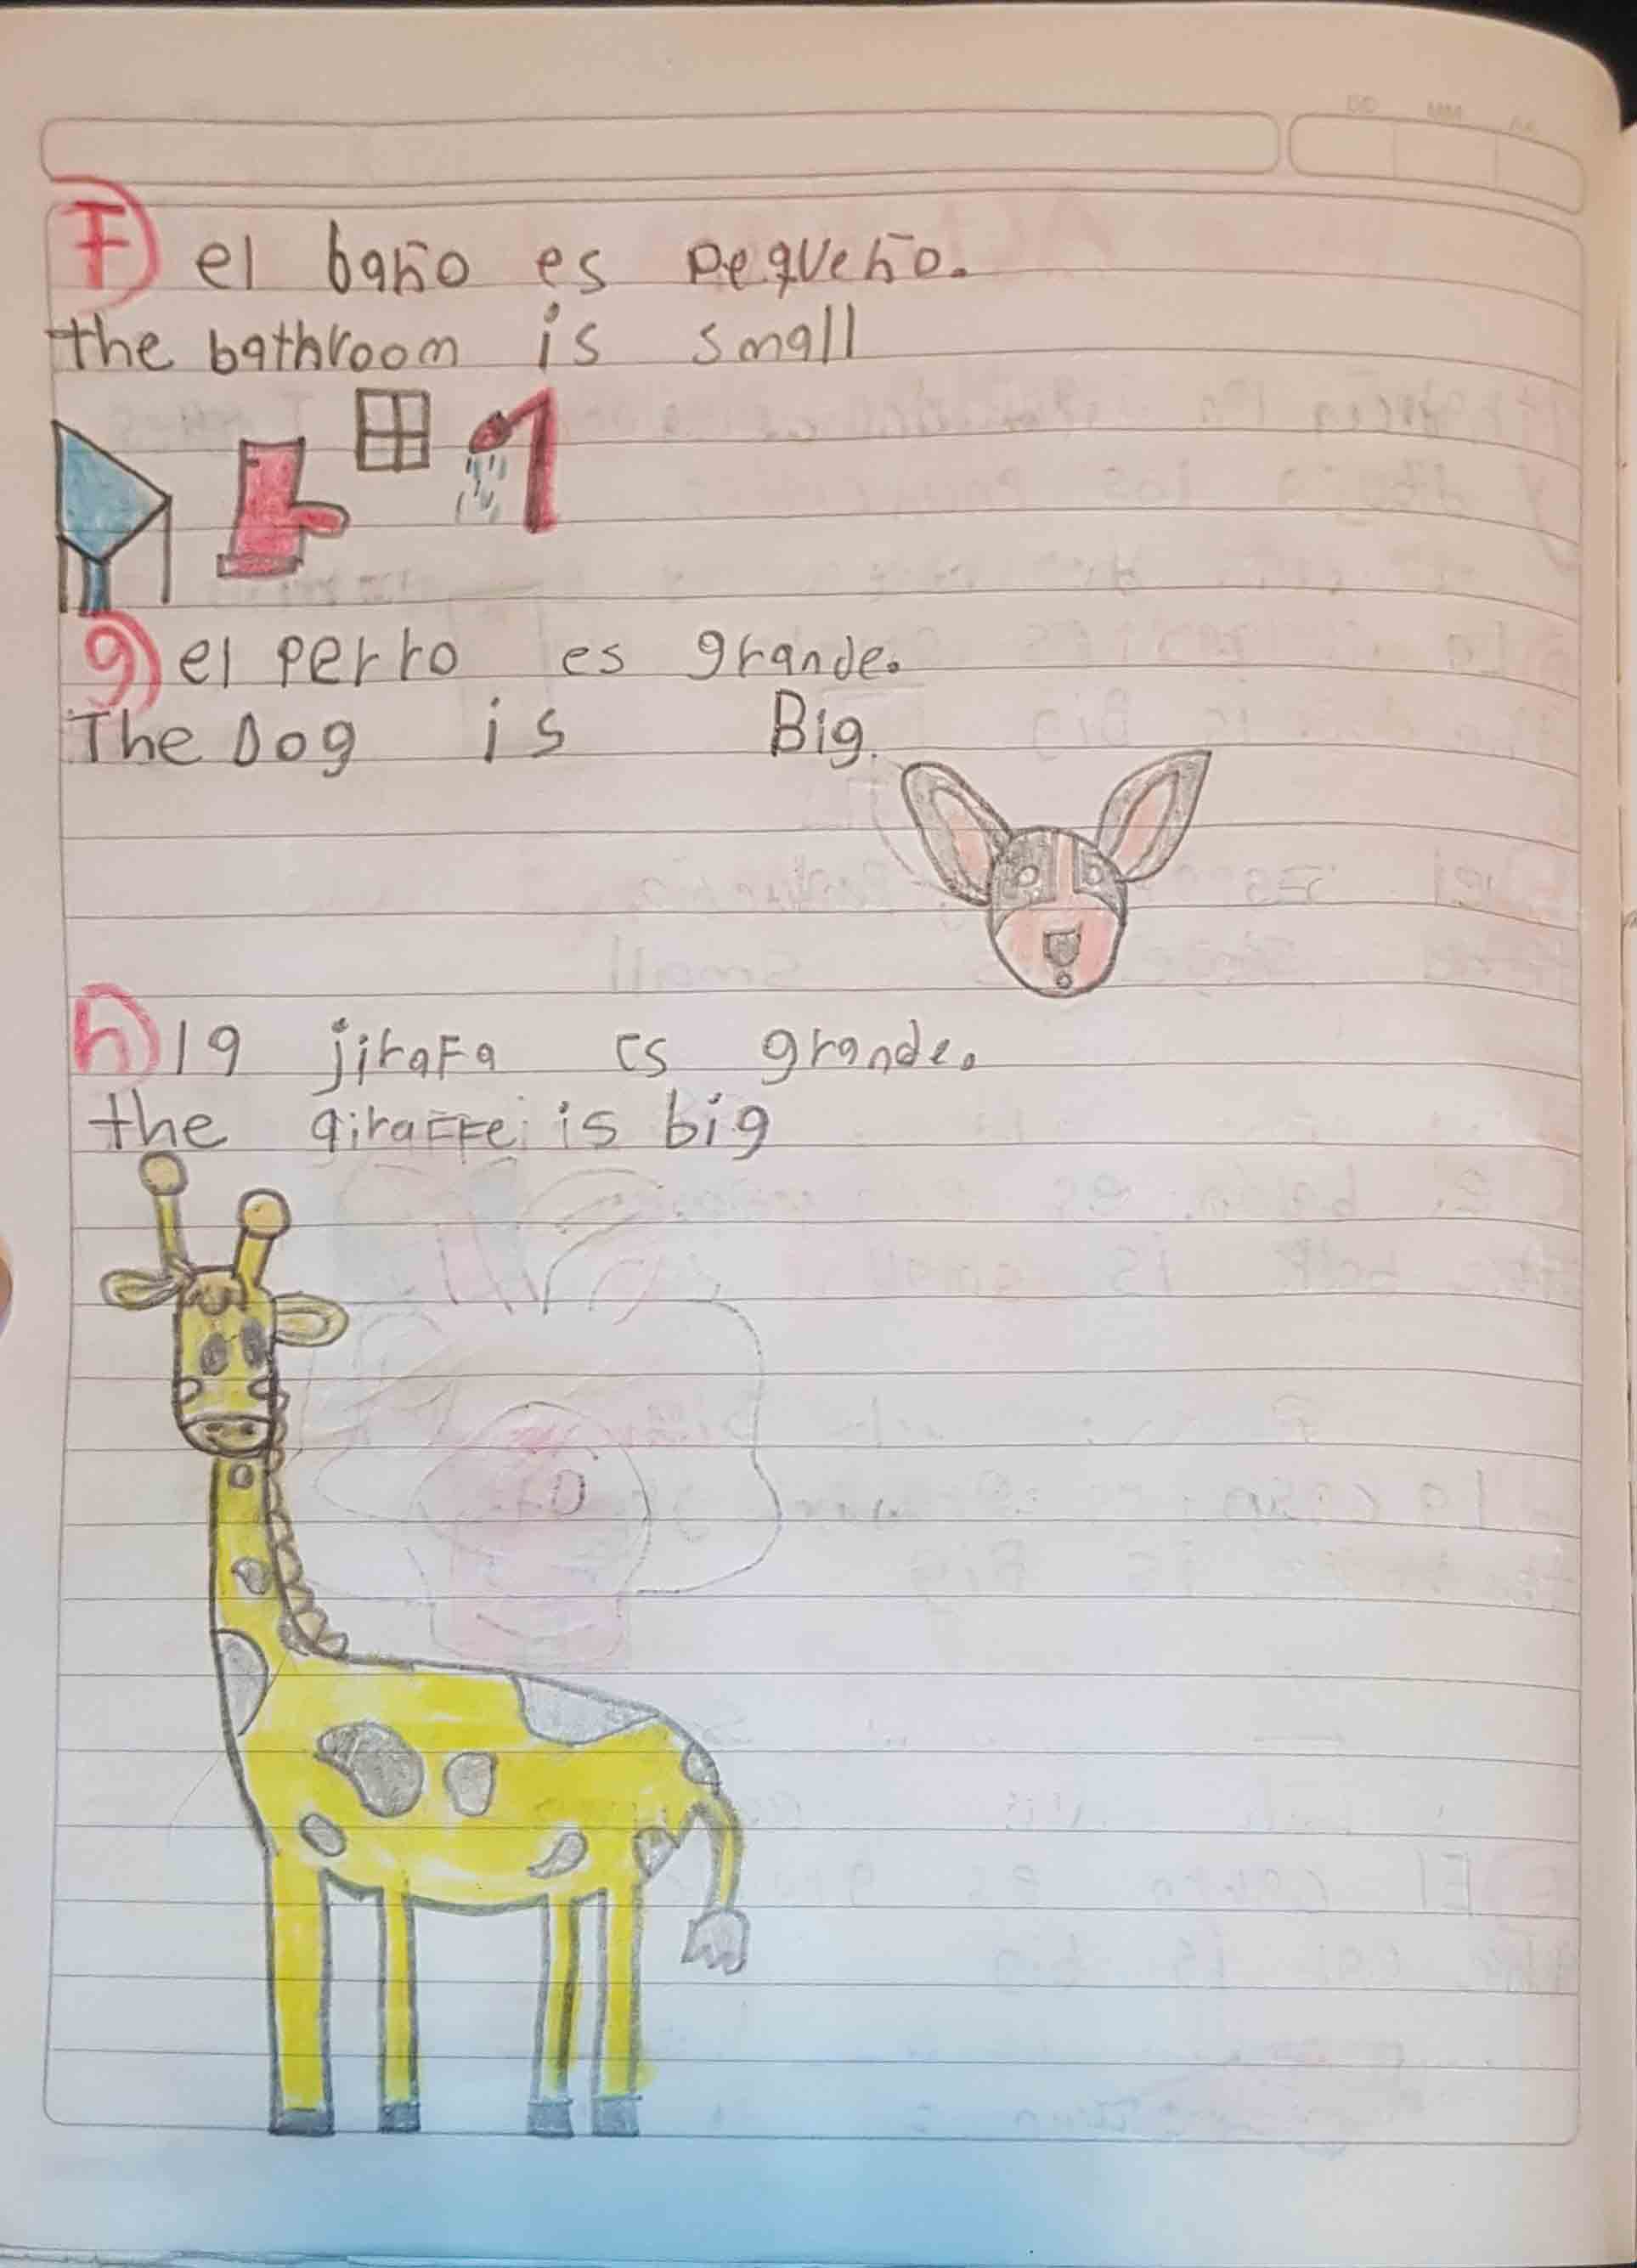 DD MM AA
F) el baño es pequeño.
the bathroom is small
g) el perro es grande.
The Dog is Big.
h) la jirafa es grande.
the giraffe is big